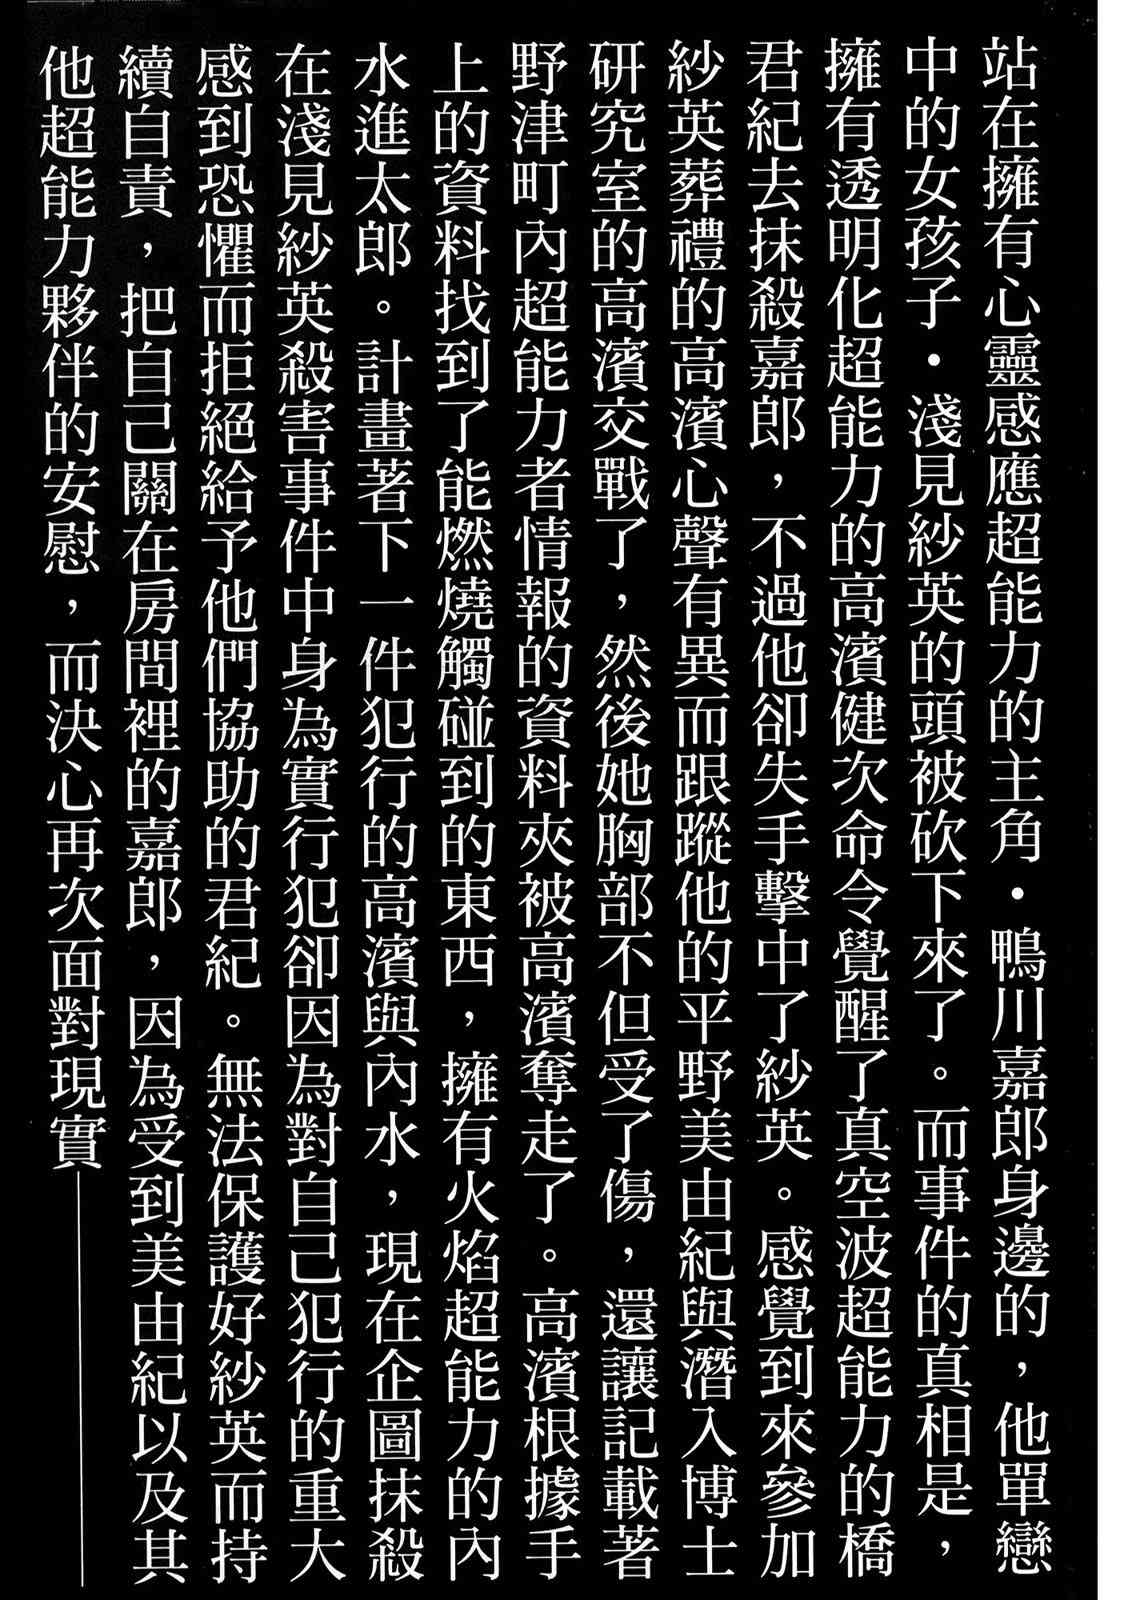 站在擁有心靈感應超能力的主角・鴨川嘉郎身邊的，他單戀
中的女孩子・淺見紗英的頭被砍下來了。而事件的真相是，
擁有透明化超能力的高濱健次命令覺醒了真空波超能力的橋
君紀去抹殺嘉郎，不過他卻失手擊中了紗英。感覺到來參加
紗英葬禮的高濱心聲有異而跟蹤他的平野美由紀與潛入博士
研究室的高濱交戰了，然後她胸部不但受了傷，還讓記載著
野津町內超能力者情報的資料夾被高濱奪走了。高濱根據手
上的資料找到了能燃燒觸碰到的東西，擁有火焰超能力的內
水進太郎。計畫著下一件犯行的高濱與內水，現在企圖抹殺
在淺見紗英殺害事件中身為實行犯卻因為對自己犯行的重大
感到恐懼而拒絕給予他們協助的君紀。無法保護好紗英而持
續自責，把自己關在房間裡的嘉郎，因為受到美由紀以及其
他超能力夥伴的安慰，而決心再次面對現實——